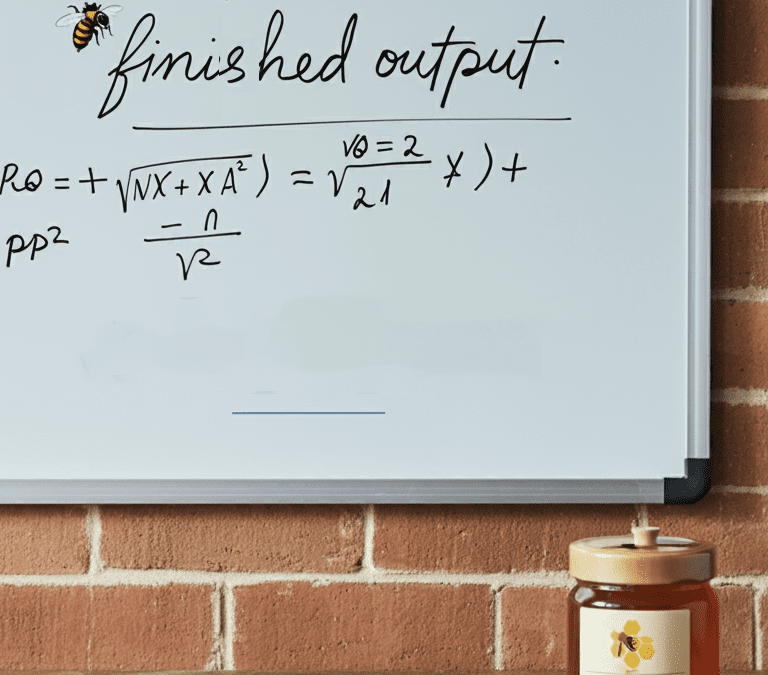 finished output.
RQ = + √NX + XA²) = √Q = 2 / √21 X ) +
PP² - n / √2